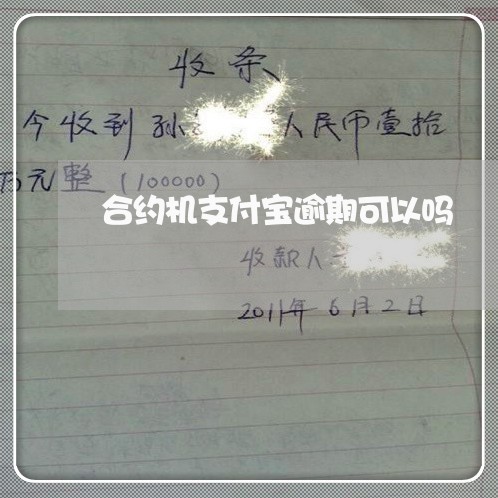 收条
今收到孙 人民币壹拾
万元整（100000）
合约机支付宝逾期可以吗
收款人
2011年6月2日